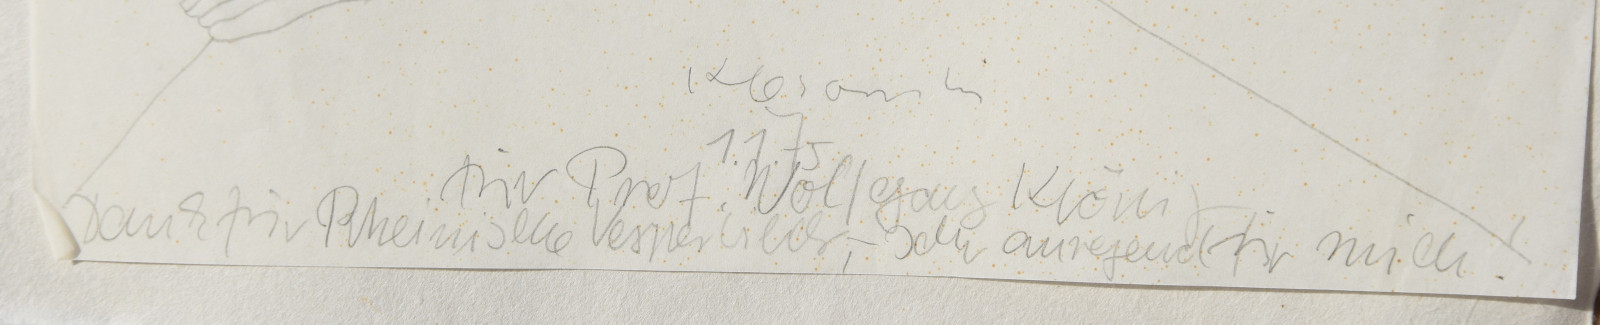 1.1.75
für Prof. Wolfgang Krönig
Dank für Rheinische Vesperbilder, – sehr anregend für mich!